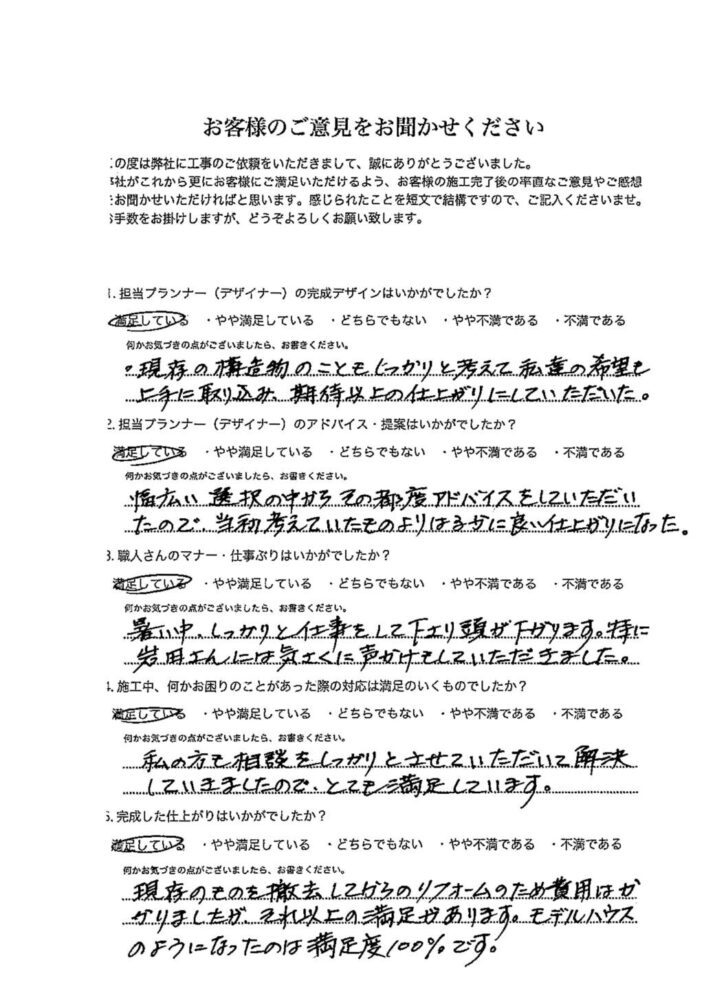 お客様のご意見をお聞かせください
この度は弊社に工事のご依頼をいただきまして、誠にありがとうございました。
弊社がこれから更にお客様にご満足いただけるよう、お客様の施工完了後の率直なご意見やご感想
をお聞かせいただければと思います。感じられたことを短文で結構ですので、ご記入くださいませ。
お手数をお掛けしますが、どうぞよろしくお願い致します。
1. 担当プランナー（デザイナー）の完成デザインはいかがでしたか？
満足している ・やや満足している ・どちらでもない ・やや不満である ・不満である
何かお気づきの点がございましたら、お書きください。
・現存の構造物のこともしっかりと考えて私達の希望を
上手に取り込み、期待以上の仕上がりにしていただいた。
2. 担当プランナー（デザイナー）のアドバイス・提案はいかがでしたか？
満足している ・やや満足している ・どちらでもない ・やや不満である ・不満である
何かお気づきの点がございましたら、お書きください。
幅広い選択の中からその都度アドバイスをしていただい
たので、当初考えていたものよりはるかに良い仕上がりになった。
3. 職人さんのマナー・仕事ぶりはいかがでしたか？
満足している ・やや満足している ・どちらでもない ・やや不満である ・不満である
何かお気づきの点がございましたら、お書きください。
暑い中、しっかりと仕事をして下さり頭が下がります。特に
岩田さんには気さくに声かけをしていただきました。
4. 施工中、何かお困りのことがあった際の対応は満足のいくものでしたか？
満足している ・やや満足している ・どちらでもない ・やや不満である ・不満である
何かお気づきの点がございましたら、お書きください。
私の方も相談をしっかりとさせていただいて解決
していきましたので、とても満足しています。
5. 完成した仕上がりはいかがでしたか？
満足している ・やや満足している ・どちらでもない ・やや不満である ・不満である
何かお気づきの点がございましたら、お書きください。
現存のものを撤去してからのリフォームのため費用はか
かりましたが、それ以上の満足があります。モデルハウス
のようになったのは満足度100%です。